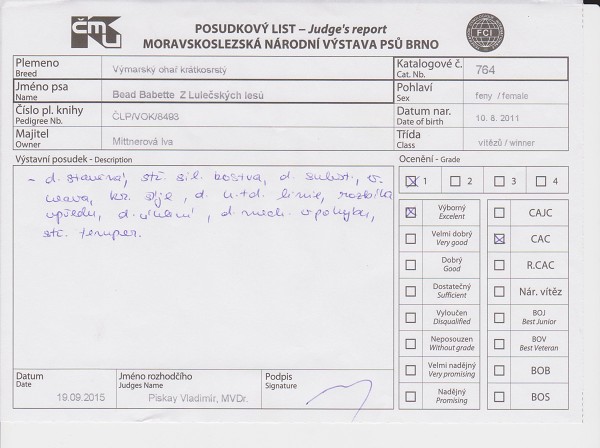 ČMKU
POSUDKOVÝ LIST – Judge's report
MORAVSKOSLEZSKÁ NÁRODNÍ VÝSTAVA PSŮ BRNO
FCI
Plemeno
Breed
Výmarský ohař krátkosrstý
Katalogové č.
Cat. Nb.
764
Jméno psa
Name
Bead Babette Z Lulečských lesů
Pohlaví
Sex
feny / female
Číslo pl. knihy
Pedigree Nb.
ČLP/VOK/8493
Datum nar.
Date of birth
10. 8. 2011
Majitel
Owner
Mittnerová Iva
Třída
Class
vítězů / winner
Výstavní posudek - Description
Ocenění - Grade
– d. stavěná, stř. sil. kostra, d.
hlava, d. linie,
vpředu, d. d. mech. v pohybu,
stř. temper.
1 2 3 4
Výborný
Excelent
CAJC
Velmi dobrý
Very good
CAC
Dobrý
Good
R.CAC
Dostatečný
Sufficient
Nár. vítěz
Vyloučen
Disqualified
BOJ
Best Junior
Neposouzen
Without grade
BOV
Best Veteran
Velmi nadějný
Very promising
BOB
Nadějný
Promising
BOS
Datum
Date
19.09.2015
Jméno rozhodčího
Judges Name
Piskay Vladimír, MVDr.
Podpis
Signature